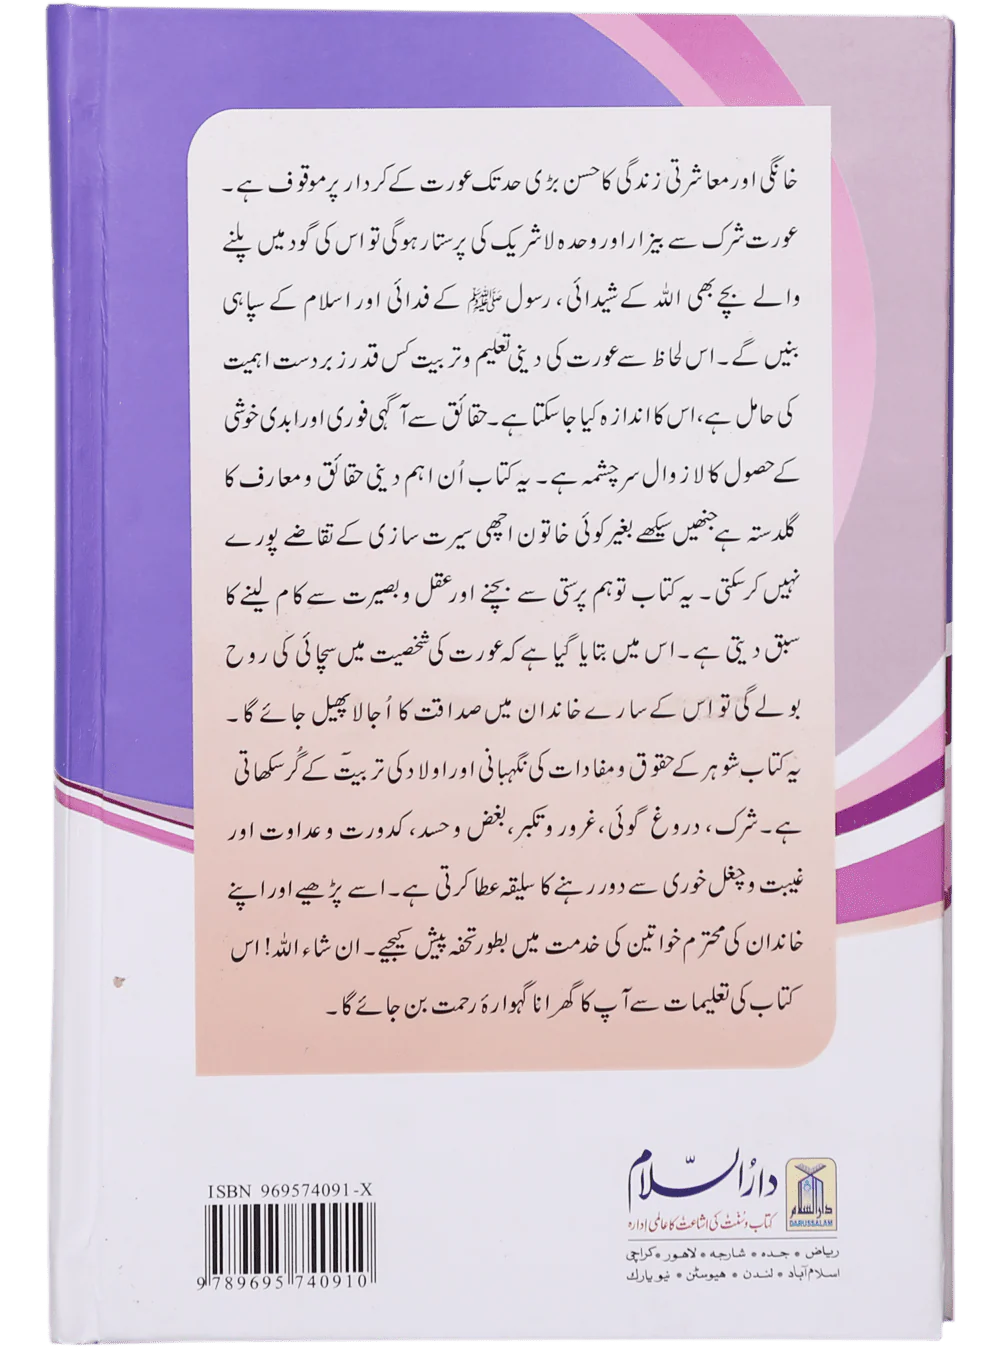 خانگی اور معاشرتی زندگی کا حسن بڑی حد تک عورت کے کردار پر موقوف ہے۔
عورت شرک سے بیزار اور وحدہ لاشریک کی پرستار ہوگی تو اس کی گود میں پلنے
والے بچے بھی اللہ کے شیدائی، رسول ﷺ کے فدائی اور اسلام کے سپاہی
بنیں گے۔ اس لحاظ سے عورت کی دینی تعلیم و تربیت کس قدر زبردست اہمیت
کی حامل ہے، اس کا اندازہ کیا جا سکتا ہے۔ حقائق سے آگہی فوری اور ابدی خوشی
کے حصول کا لازوال سرچشمہ ہے۔ یہ کتاب اُن اہم دینی حقائق و معارف کا
گلدستہ ہے جنھیں سیکھے بغیر کوئی خاتون اچھی سیرت سازی کے تقاضے پورے
نہیں کر سکتی۔ یہ کتاب توہم پرستی سے بچنے اور عقل و بصیرت سے کام لینے کا
سبق دیتی ہے۔ اس میں بتایا گیا ہے کہ عورت کی شخصیت میں سچائی کی روح
بولے گی تو اس کے سارے خاندان میں صداقت کا اُجالا پھیل جائے گا۔
یہ کتاب شوہر کے حقوق و مفادات کی نگہبانی اور اولاد کی تربیت کے گُر سکھاتی
ہے۔ شرک، دروغ گوئی، غرور و تکبر، بغض و حسد، کدورت و عداوت اور
غیبت و چغل خوری سے دور رہنے کا سلیقہ عطا کرتی ہے۔ اسے پڑھیے اور اپنے
خاندان کی محترم خواتین کی خدمت میں بطور تحفہ پیش کیجیے۔ ان شاء اللہ! اس
کتاب کی تعلیمات سے آپ کا گھرانا گہوارۂ رحمت بن جائے گا۔
دارالسلام
دارالسلام
DARUSSALAM
کتاب و سنت کی اشاعت کا عالمی ادارہ
ریاض • جدہ • شارجہ • لاہور • کراچی
اسلام آباد • لندن • ہیوسٹن • نیو یارک
ISBN 969574091-X
9 789695 740910